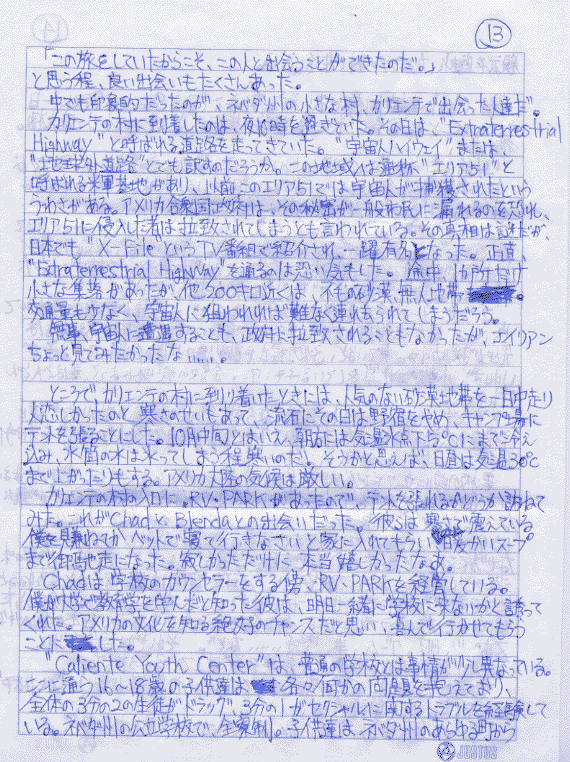 13
「この旅をしていたからこそ、この人と出会うことができたのだ。」
と思う程、良い出会いもたくさんあった。
中でも印象的だったのが、ネバダ州の小さな村、カリエンテで出会った人達だ。
カリエンテの村に到着したのは、夜10時を過ぎていた。その日は、"Extraterrestrial
Highway" と呼ばれる道路を走ってきていた。"宇宙人ハイウェイ" または、
"地球外道路"とでも訳すのだろうか。この地域には通称、"エリア51"と
呼ばれる米軍基地があり、以前このエリア51では宇宙人が捕獲されたという
うわさがある。アメリカ合衆国政府は、その秘密が一般市民に漏れるのを恐れ、
エリア51に侵入した者は拉致されてしまうとも言われている。その真相は謎だが、
日本でも "X-File"というTV番組で紹介され、一躍有名となった。正直、
"Extraterrestrial Highway"を通るのは恐い気もした。途中、1ヵ所だけ
小さな集落があったが、他200キロ近くは、不毛の砂漠、無人地帯
交通量も少なく、宇宙人に狙われれば難なく連れ去られてしまうだろう。
無事、宇宙人に遭遇することも、政府に拉致されることもなかったが、エイリアン
ちょっと見てみたかったな……。
ところで、カリエンテの村に到り着いたときには、人気のない砂漠地帯を一日中走り
人恋しかったのと、寒さのせいもあって、流石にその日は野宿をやめ、キャンプ場に
テントを張ることにした。10月中旬とはいえ、朝方には気温氷点下5℃にまで冷え
込み、水筒の水は氷ってしまう程寒いのだ。そうかと思えば、日昼は気温30℃
まで上がったりもする。アメリカ大陸の気候は厳しい。
カリエンテの村の入口に、RV・PARKがあったので、テントを張れるかどうか訪ねて
みた。これがChadと、Blendaとの出会いだった。彼らは寒さで震えている
僕を見兼ねてか、ベットで寝て行きなさいと家に入れてもらい、暖かいスープ
まで御馳走になった。寂しかっただけに、本当嬉しかったなぁ。
Chadは学校のカウンセラーをする傍、RV・PARKを経営している。
僕が大学で教育学を学んだと知った彼は、明日一緒に学校に来ないかと誘って
くれた。アメリカの文化を知る絶好のチャンスだと思い、喜んで行かせてもらう
ことにした。
"Caliente Youth Center"は、普通の学校とは事情が少し異なっている。
ここに通う16〜18歳の子供達は 各々何かの問題を抱えており、
全体の3分の2の生徒がドラッグ、3分の1がセクシャルに関するトラブルを経験して
いる。ネバダ州の公立学校で、全寮制。子供達は、ネバダ州のあらゆる町から
JUSTUS